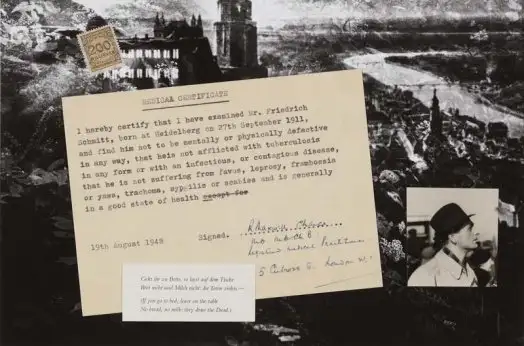 200
MEDICAA CERTIFICATE
I hereby certify that I have examined Mr. Friedrich
Schmitt, born at Heidelberg on 27th September 1911,
and find him not to be mentally or physically defective
in any way, that heis not afflicted with tuberculosis
in any form or with an infectious, or contagious disease,
that he is not suffering from favus, leprosy, frambosia
or yaws, trachoma, syphilis or scabies and is generally
in a good state of health except for
19th August 1948 Signed.
London W.1
Geht ihr zu Bette, so laßt auf dem Tische
Brot nicht und Milch nicht: die Toten ziehts —
If you go to bed, leave on the table
No bread, no milk: they draw the Dead.